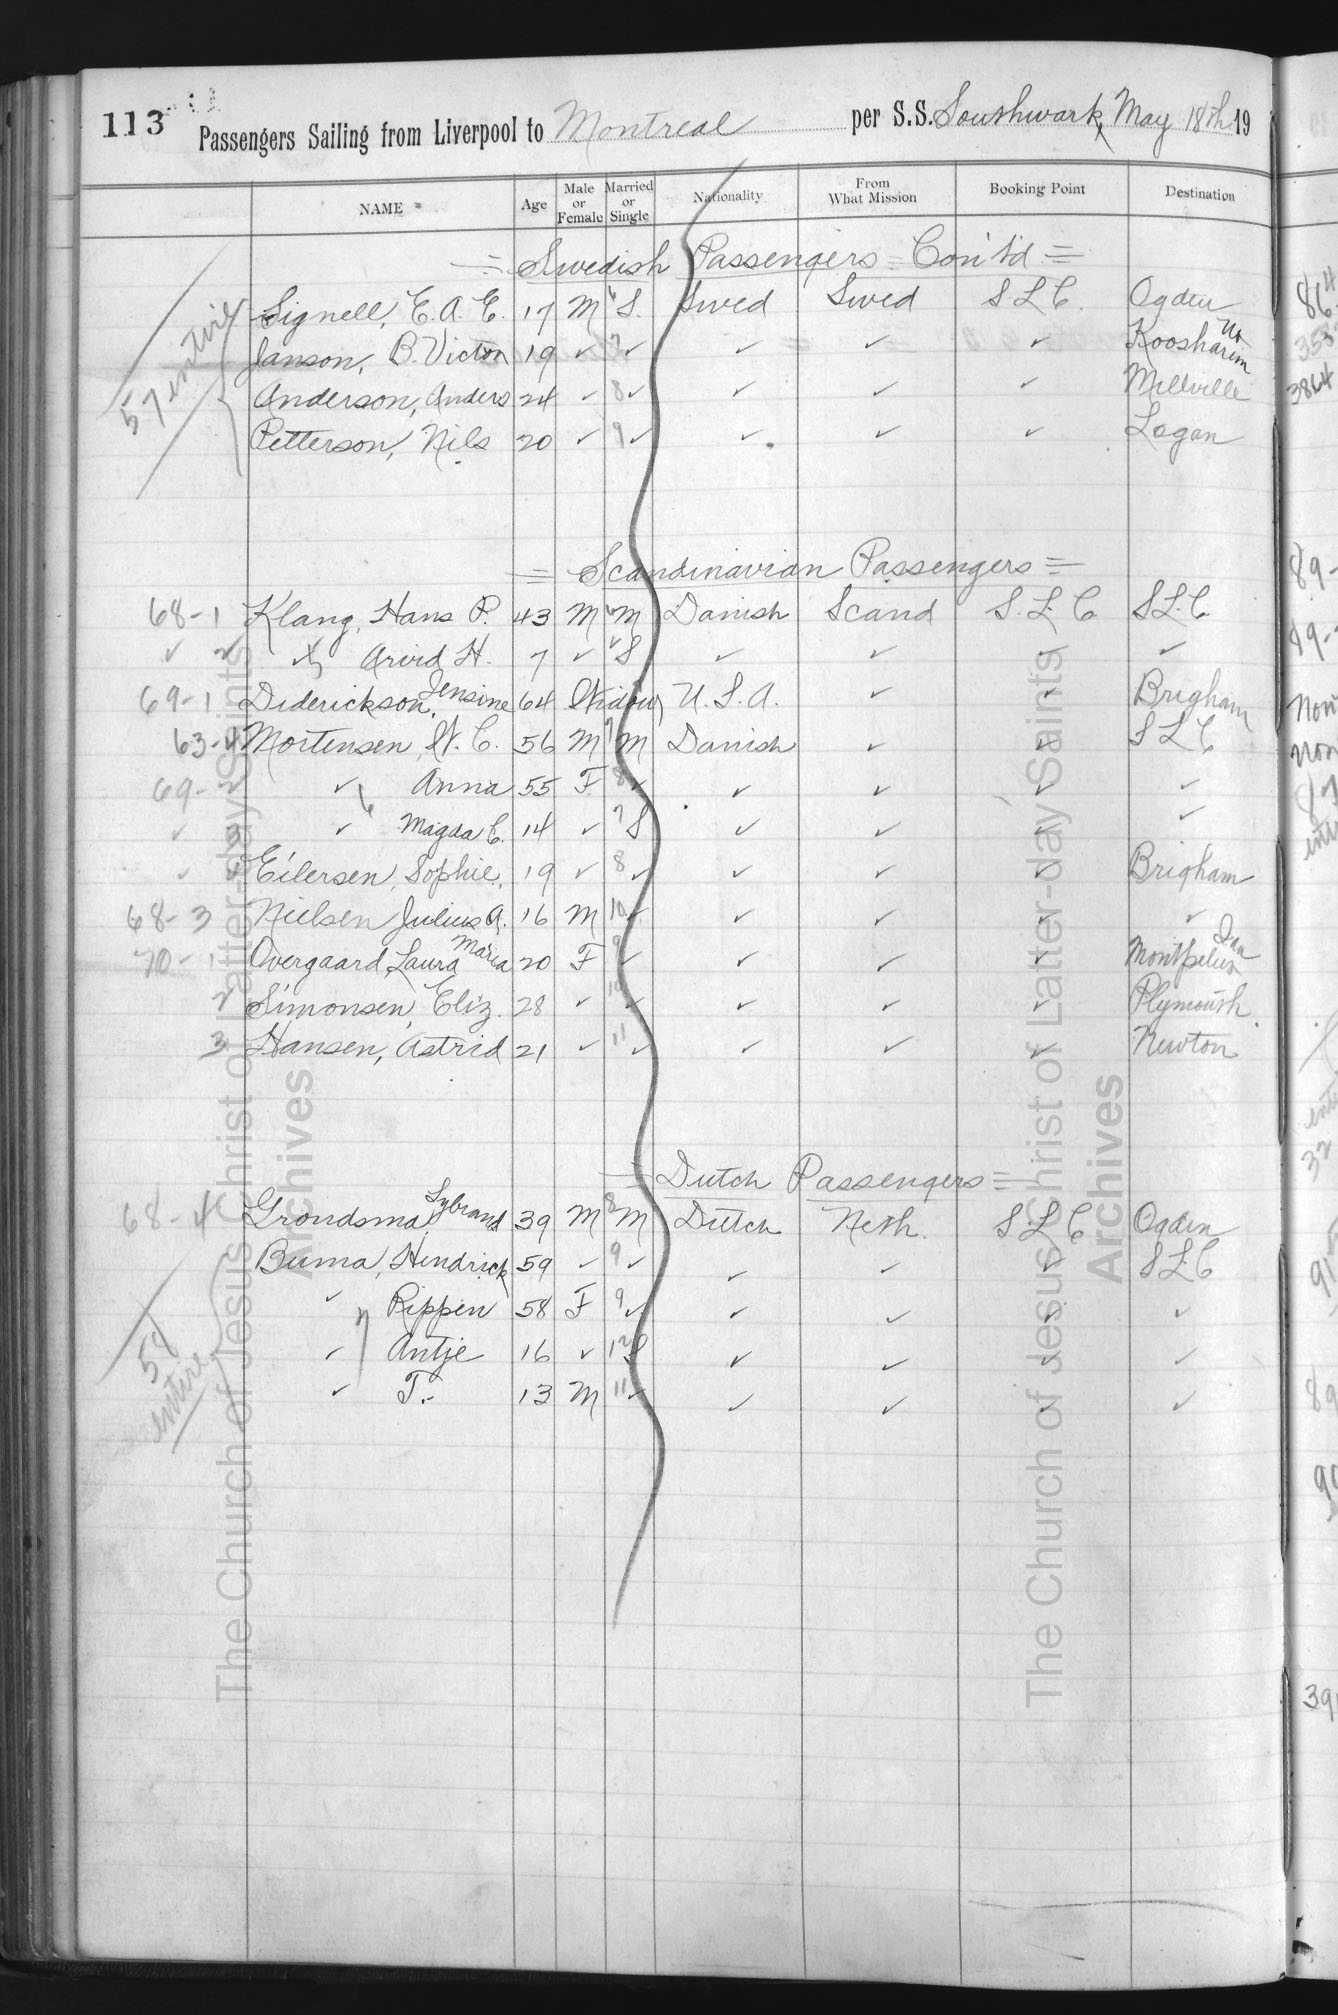 113
Passengers Sailing from Liverpool to Montreal per S.S. Southwark, May 18th 19
NAME Age Male or Female Married or Single Nationality From What Mission Booking Point Destination
= Swedish Passengers = Con't'd =
57 entire
Signell, E. A. E. 17 M 6 S. Swed Swed S L C. Ogden
Janson, B. Victor 19 ✓ 7 ✓ ✓ ✓ ✓ Koosharem
Anderson, Anders 24 ✓ 8 ✓ ✓ ✓ ✓ Millville
Petterson, Nils 20 ✓ 9 ✓ ✓ ✓ ✓ Logan
= Scandinavian Passengers =
68-1 Klang, Hans P. 43 M 6 M Danish Scand S. L. C S L. C
✓ 2 ✓ Arvid H. 7 ✓ ✓ S ✓ ✓ ✓ ✓
69-1 Diderickson, Jensine 64 Widow U. S. A. ✓ ✓ Brigham
63-4 Mortensen, N. C. 56 M 7 M Danish ✓ ✓ S L C
69-2 ✓ Anna 55 F 8 ✓ ✓ ✓ ✓ ✓
✓ 3 ✓ Magda C. 14 ✓ 7 S ✓ ✓ ✓ ✓
✓ 4 Eilersen, Sophie, 19 ✓ 8 ✓ ✓ ✓ ✓ Brigham
68-3 Nielsen Julius A. 16 M 10 ✓ ✓ ✓ ✓ ✓
70-1 Overgaard, Laura Maria 20 F 9 ✓ ✓ ✓ ✓ Montpelier Ida
2 Simonsen, Eliz. 28 ✓ 10 ✓ ✓ ✓ ✓ Plymouth
3 Hansen, Astrid 21 ✓ 11 ✓ ✓ ✓ ✓ Newton
= Dutch Passengers =
68-4 Grondsma, Sybrand 39 M 8 M Dutch Neth. S. L C Ogden
Buma, Hendrick 59 ✓ 9 ✓ ✓ ✓ ✓ S L C
✓ Rippen 58 F 9 ✓ ✓ ✓ ✓ ✓
✓ Antje 16 ✓ 12 S ✓ ✓ ✓ ✓
✓ T. 13 M 11 ✓ ✓ ✓ ✓ ✓
58 entire
The Church of Jesus Christ of Latter-day Saints
Archives
The Church of Jesus Christ of Latter-day Saints
Archives
864
353
3864
89-
89-
non
non
ent
32
91
89
39